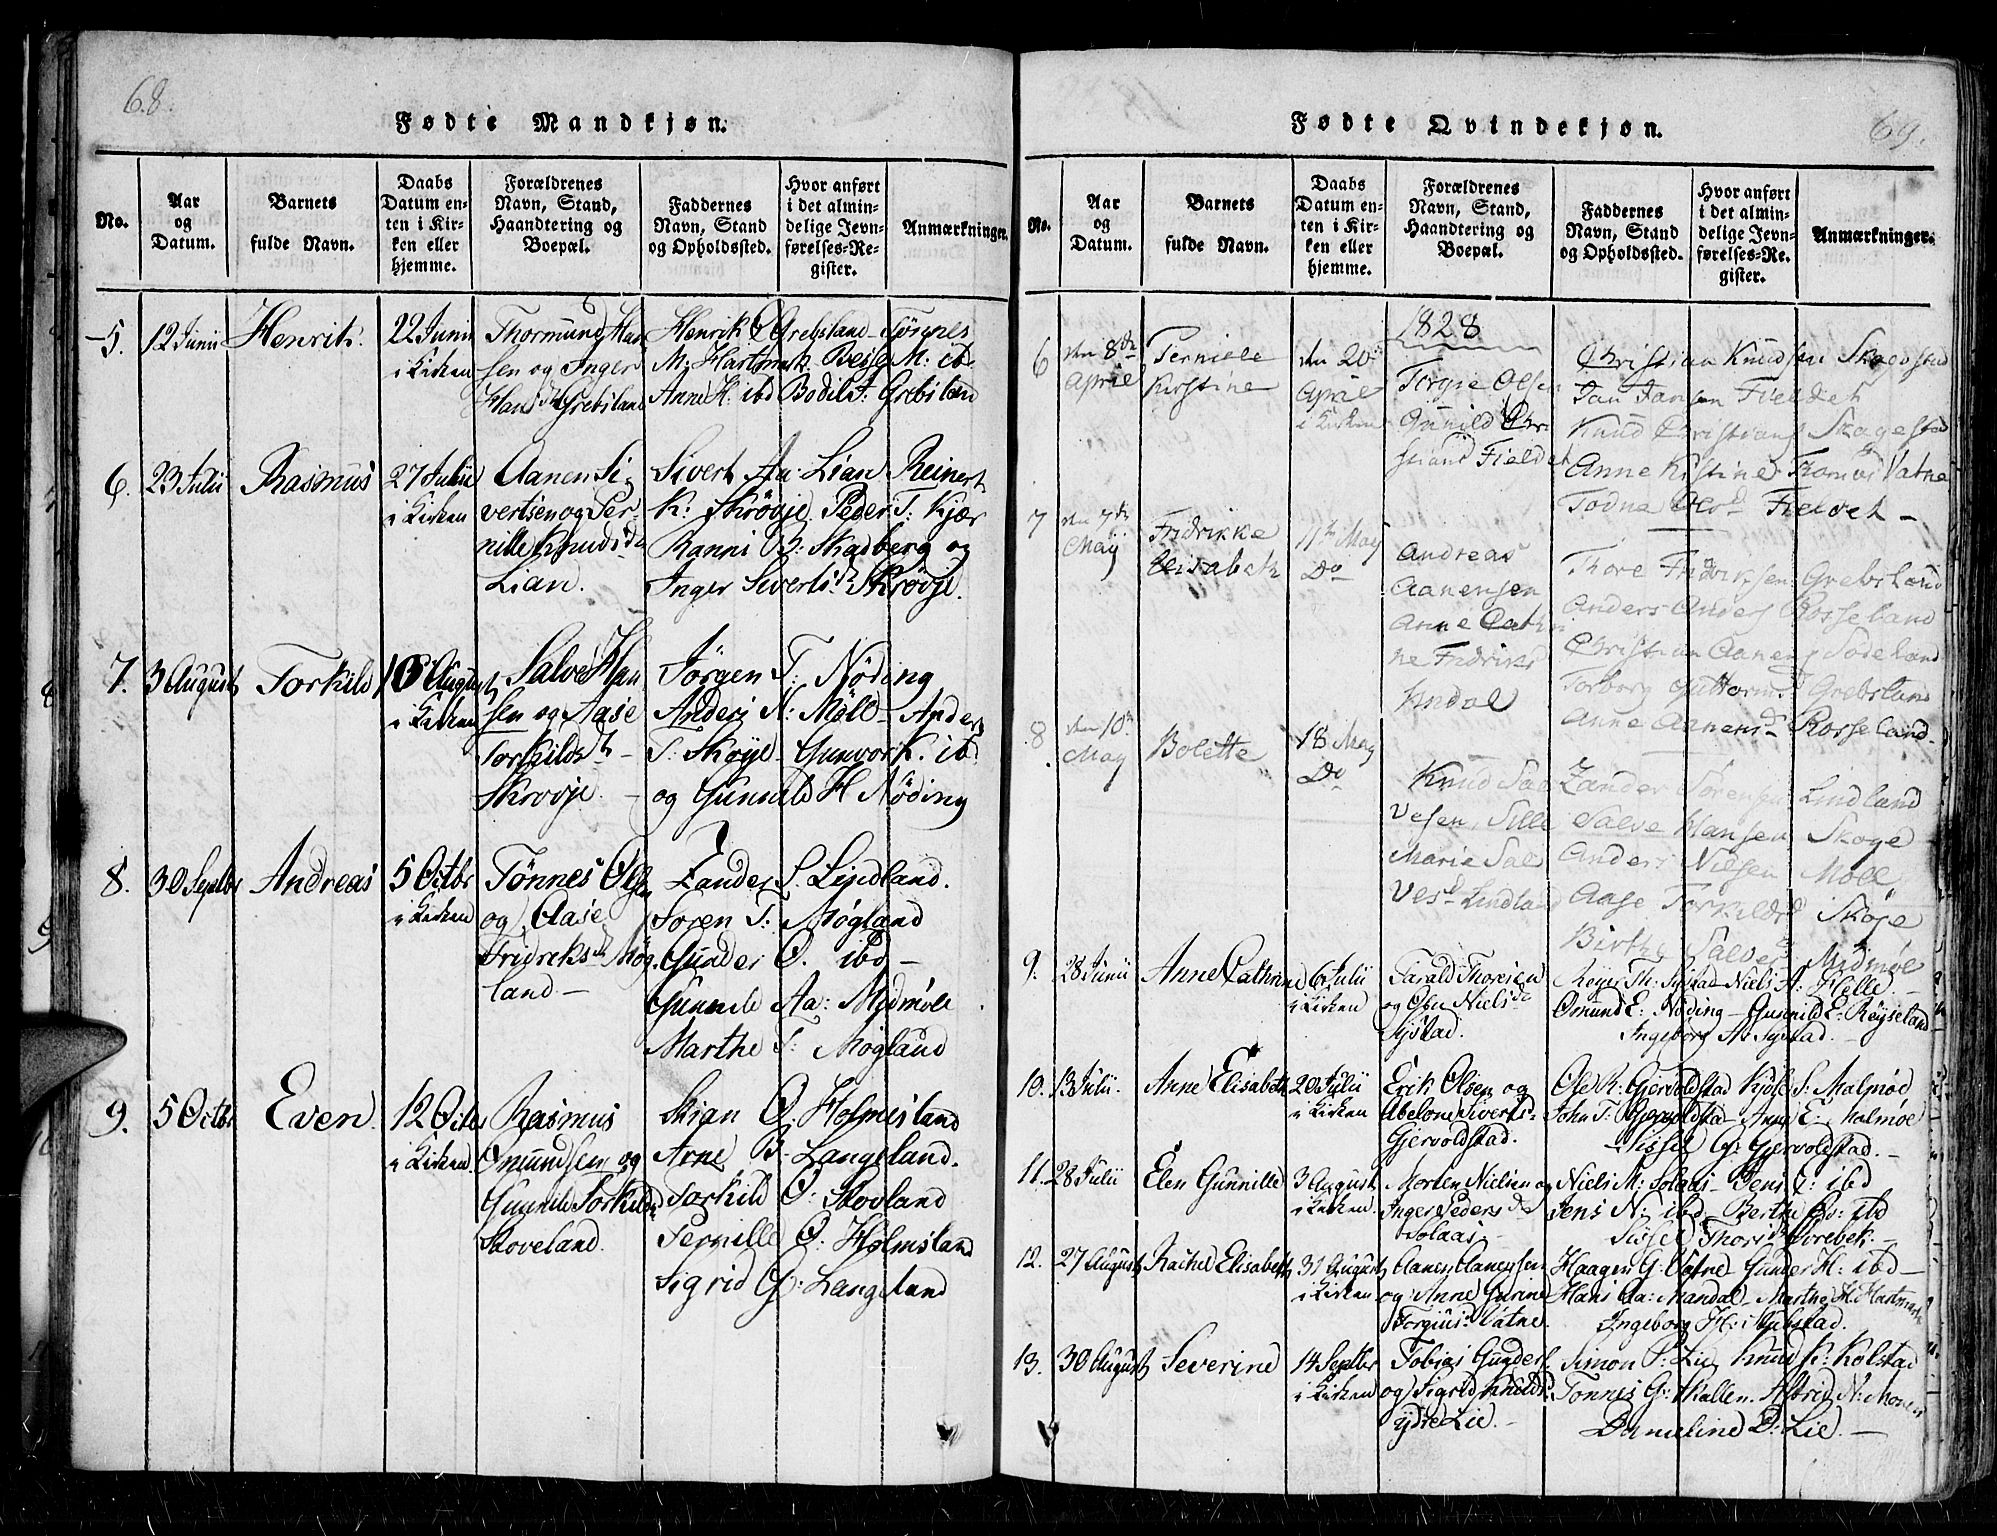 68.
Fødte Mandkjøn.
No.
Aar
og
Datum.
Barnets
fulde Navn.
Daabs
Datum en-
ten i Kir-
ken eller
hjemme.
Forældrenes
Navn, Stand,
Haandtering og
Boepæl.
Faddernes
Navn, Stand
og Opholdssted.
Hvor anført
i det almin-
delige Jevn-
førelses-Re-
gister.
Anmærkninger.
5. 12 Junii Henrik. 22 Junii i Kirken
Thormund Han
sen og Inger
Hans D. Grebsland
Henrik O Grebsland - Tönnes
M: Hartmk. Besse M: ibd
Anne K: ibd Bodil T: Grebsland
6. 23 Julii Rasmus 27 Julii i Kirken
Aanen Si
vertsen og Per-
nille Knudsd.
Lian.
Sivert Aa: Lian Reinert
K: Skrövje Peder T: Kjær
Ranni B: Skadberg og
Inger Sivertsd. Skrövje.
7. 3 August Torkild 10 August i Kirken
Salve Han
sen og Aase
Torkildsd. -
Skrovje. -
Jörgen T: Nöding
Anders N: Möll - Anders
T: Sköye - Gunvor K. ibd
og Gunnild H Nöding
8. 30 Septbr Andreas 5 Octbr i Kirken
Tönnes Olsen
og Aase
Fridreksd. Mög
land -
Zander S. Lindland.
Soren T: Mögland
Gunder O. ibd -
Gunnild Aa: Mydmöle
Marthe T: Mögland
9. 5 Octbr Even. 12 Octbr i Kirken
Rasmus
Omundsen og
Gunnild Torkildsd.
Skoveland.
Stian O: Holmesland
Arne B. Langeland.
Torkild O: Skovland
Pernille O: Holmsland
Sigrid G: Langeland
69.
Fødte Qvindekjøn.
No.
Aar
og
Datum.
Barnets
fulde Navn.
Daabs
Datum en-
ten i Kir-
ken eller
hjemme.
Forældrenes
Navn, Stand,
Haandtering og
Boepæl.
Faddernes
Navn, Stand
og Opholdssted.
Hvor anført
i det almin-
delige Jevn-
førelses-Re-
gister.
Anmærkninger.
1828
6 den 8de April Pernille Kirstine den 20de April i Kirken
Torgie Olsen
Gunild Chr
stians Fieldet
Christian Knudsen Skagestad
Jan Jansen Fieldet
Knud Christians Skagestad
Anne Kistine Thomasd Vatne
Todne Olsd. Fieldet -
7 den 7de Maÿ Fridrikke Elisabeth 11te May Do
Andreas
Aanensen
Anne Cathri
ne Fidriksd
Undal
Thore Fridriksen Grebsland
Anders Anders Rosseland
Christian Aanens Sodeland
Torborg Guttormsd Grebsland
Anne Aanensd. Rosseland.
8 den 10de May Bolette 18 May Do
Knud Sal
vesen, Sille
Marie Sal
vesd Lindland
Zander Sörensen Lindland
Salve Hansen Skoge
Anders Nilsen Möll
Aase Torkildsd Sköje
Birthe Salvesd Midmöl
9. 28 Junii Anne Cathrine 6 Julii i Kirken
Tarald Thorsen
og Nielsd.
Systad.
Reyer Th: Systad - Niels A: Helle. -
Osmund E: Nöding - Gunnild E: Röyseland
Ingeborg A: Systad. -
10. 13 Julii. Anne Elisabeth 20 Julii i Kirken
Erik Olsen og
Abelone Siverts-
Gjervoldstad.
Ole R: Gjervoldstad Kjöle S: Malmöe
John T: Gjervoldstad - Anne E. Malmöe
Sissel G: Gjervoldstad. -
11. 28 Julii Elen Gunnille 3 August i Kirken
Morten Nielsen og
Inger Pedersd.
Solaas. -
Niels M: Solaas - Jens J: ibd
Jens N: ibd - Berthe Ev: ibd
Sissel Thorisd. -
12. 27 August Rachel Elisabeth 31 August i Kirken
Aanen Aanensen
og Anne Gurine
Torgiusd. Vatne.
Haagen G: Vatne - Gunder H: ibd -
Hans Aa: Mandal - Marthe H. Hartmark
Ingeborg H:
13. 30 August Severine 14 Septbr i Kirken
Tobias Gunders.
og Sigrid Knudsd.
ydre Lie. -
Simon P: Lie Knud K: Kolstad
Tonnes G: Skallen. Astrid N: Monen
Danieline D: Lie. -